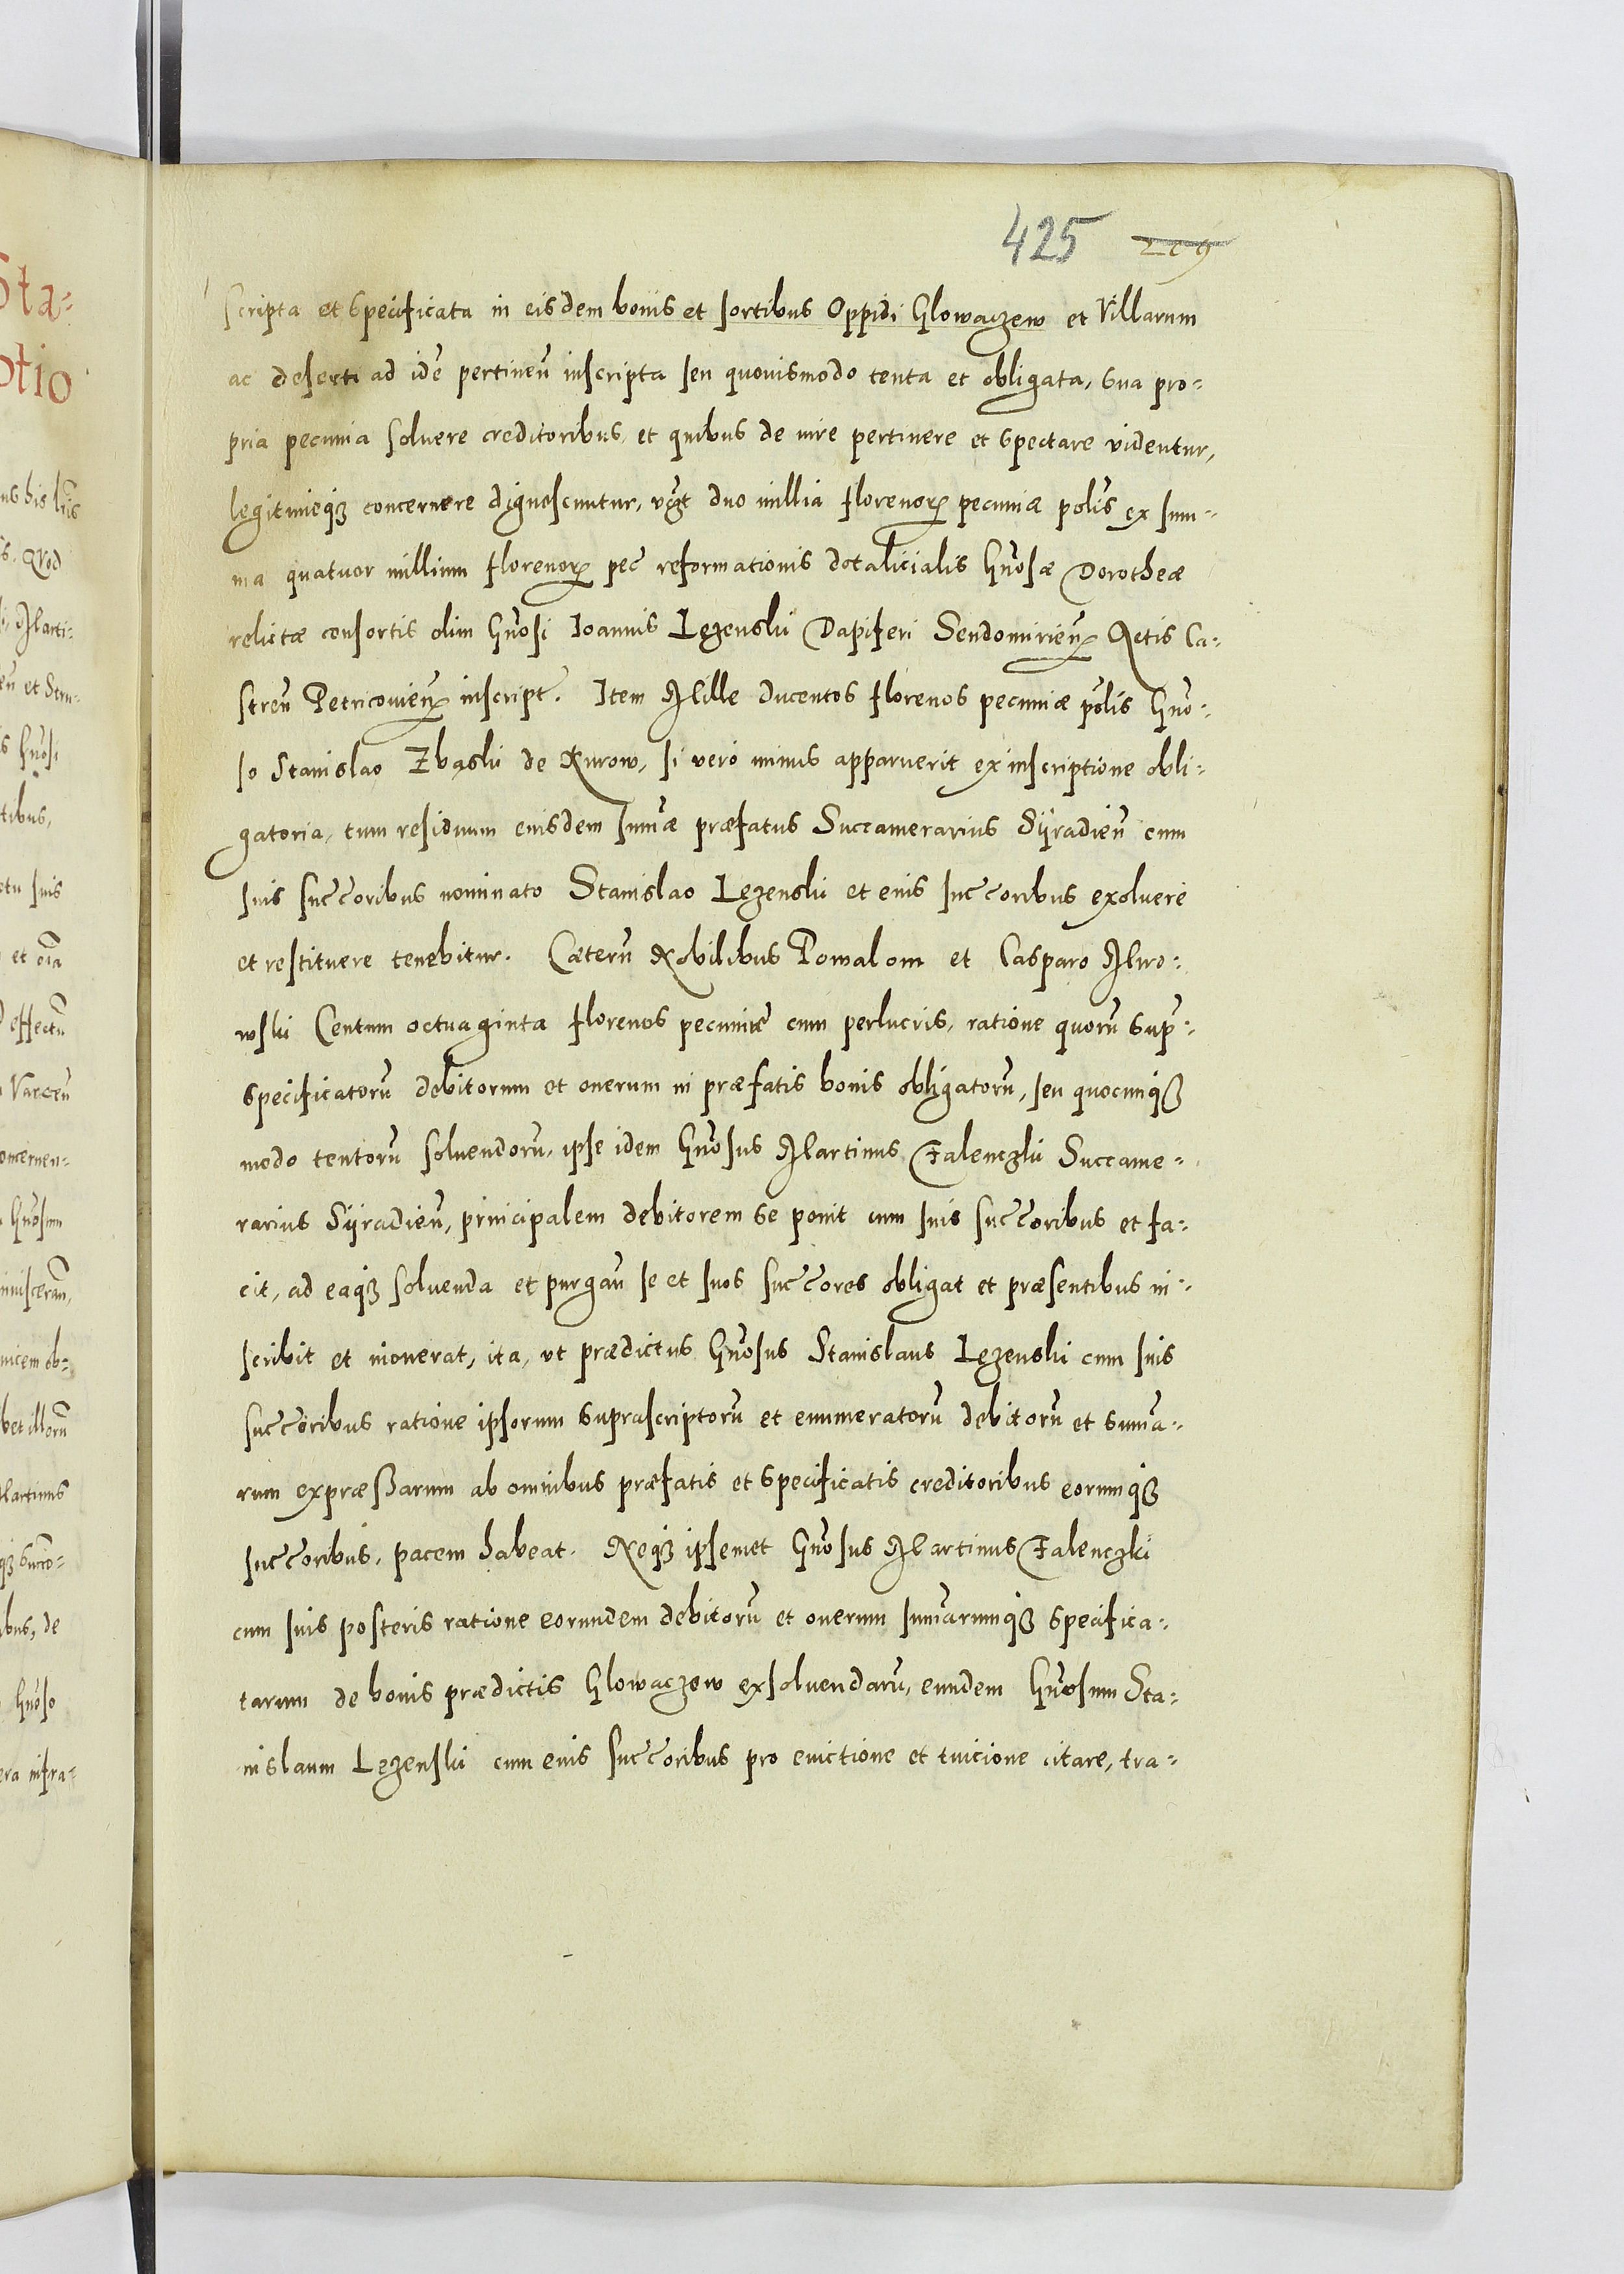 425 209
scripta et specificata in eisdem bonis et sortibus Oppidi Glowaczew et Villarum
ac deserti ad idē pertineñ inscripta seu quouismodo tenta et obligata, sua pro-
pria pecunia soluere creditoribus, et quibus de iure pertinere et spectare videntur,
legitimeqȝ concernere dignoscuntur, vczt duo millia florenorꝝ pecuniæ polis ex sum-
ma quatuor millium florenorꝝ pec̃ reformationis dotalicialis Gñosæ Dorotheæ
relictæ consortis olim Gñosi Ioannis Lezenski Dapiferi Sendomirieñ Actis Ca-
streñ Petricovieñ inscript. Item Mille ducentos florenos pecuniæ polis Gño-
so Stanislao Zbąski de Kurow, si vero minus apparuerit ex inscriptione obli-
gatoria, tum residuum eiusdem sum̃æ præfatus Succamerarius Syradieñ cum
suis succ̃oribus nominato Stanislao Lezenski et eius succ̃oribus exoluere
et restituere tenebitur. Cæterũ Nobilibus Powalom et Casparo Mro-
wski Centum octuaginta florenos pecuniæ cum perlucris, ratione quorũ sup̃-
specificatorũ debitorum et onerum in præfatis bonis obligatorũ, seu quocunqȝ
modo tentorũ soluendorũ, ipse idem Gñosus Martinus Falenczki Succame-
rarius Syradieñ, principalem debitorem se ponit cum suis succ̃oribus et fa-
cit, ad eaqȝ soluenda et purgañ se et suos succ̃ores obligat et præsentibus in-
scribit et inonerat, ita, ut prædictus Gñosus Stanislaus Lezenski cum suis
succ̃oribus ratione ipsorum suprascriptorũ et enumeratorũ debitorũ et sum̃a-
rum expræßarum ab omnibus præfatis et specificatis creditoribus eorumqȝ
succ̃oribus, pacem habeat. Neqȝ ipsemet Gñosus Martinus Falenczki
cum suis posteris ratione eorundem debitorũ et onerum sum̃arumqȝ specifica-
tarum de bonis prædictis Glowaczew exsoluendarũ, eundem Gñosum Sta-
nislaum Lezenski cum eius succ̃oribus pro euictione et tuicione citare, tra-